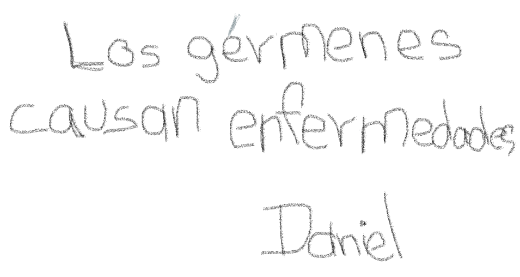 Los gérmenes
causan enfermedades
Daniel